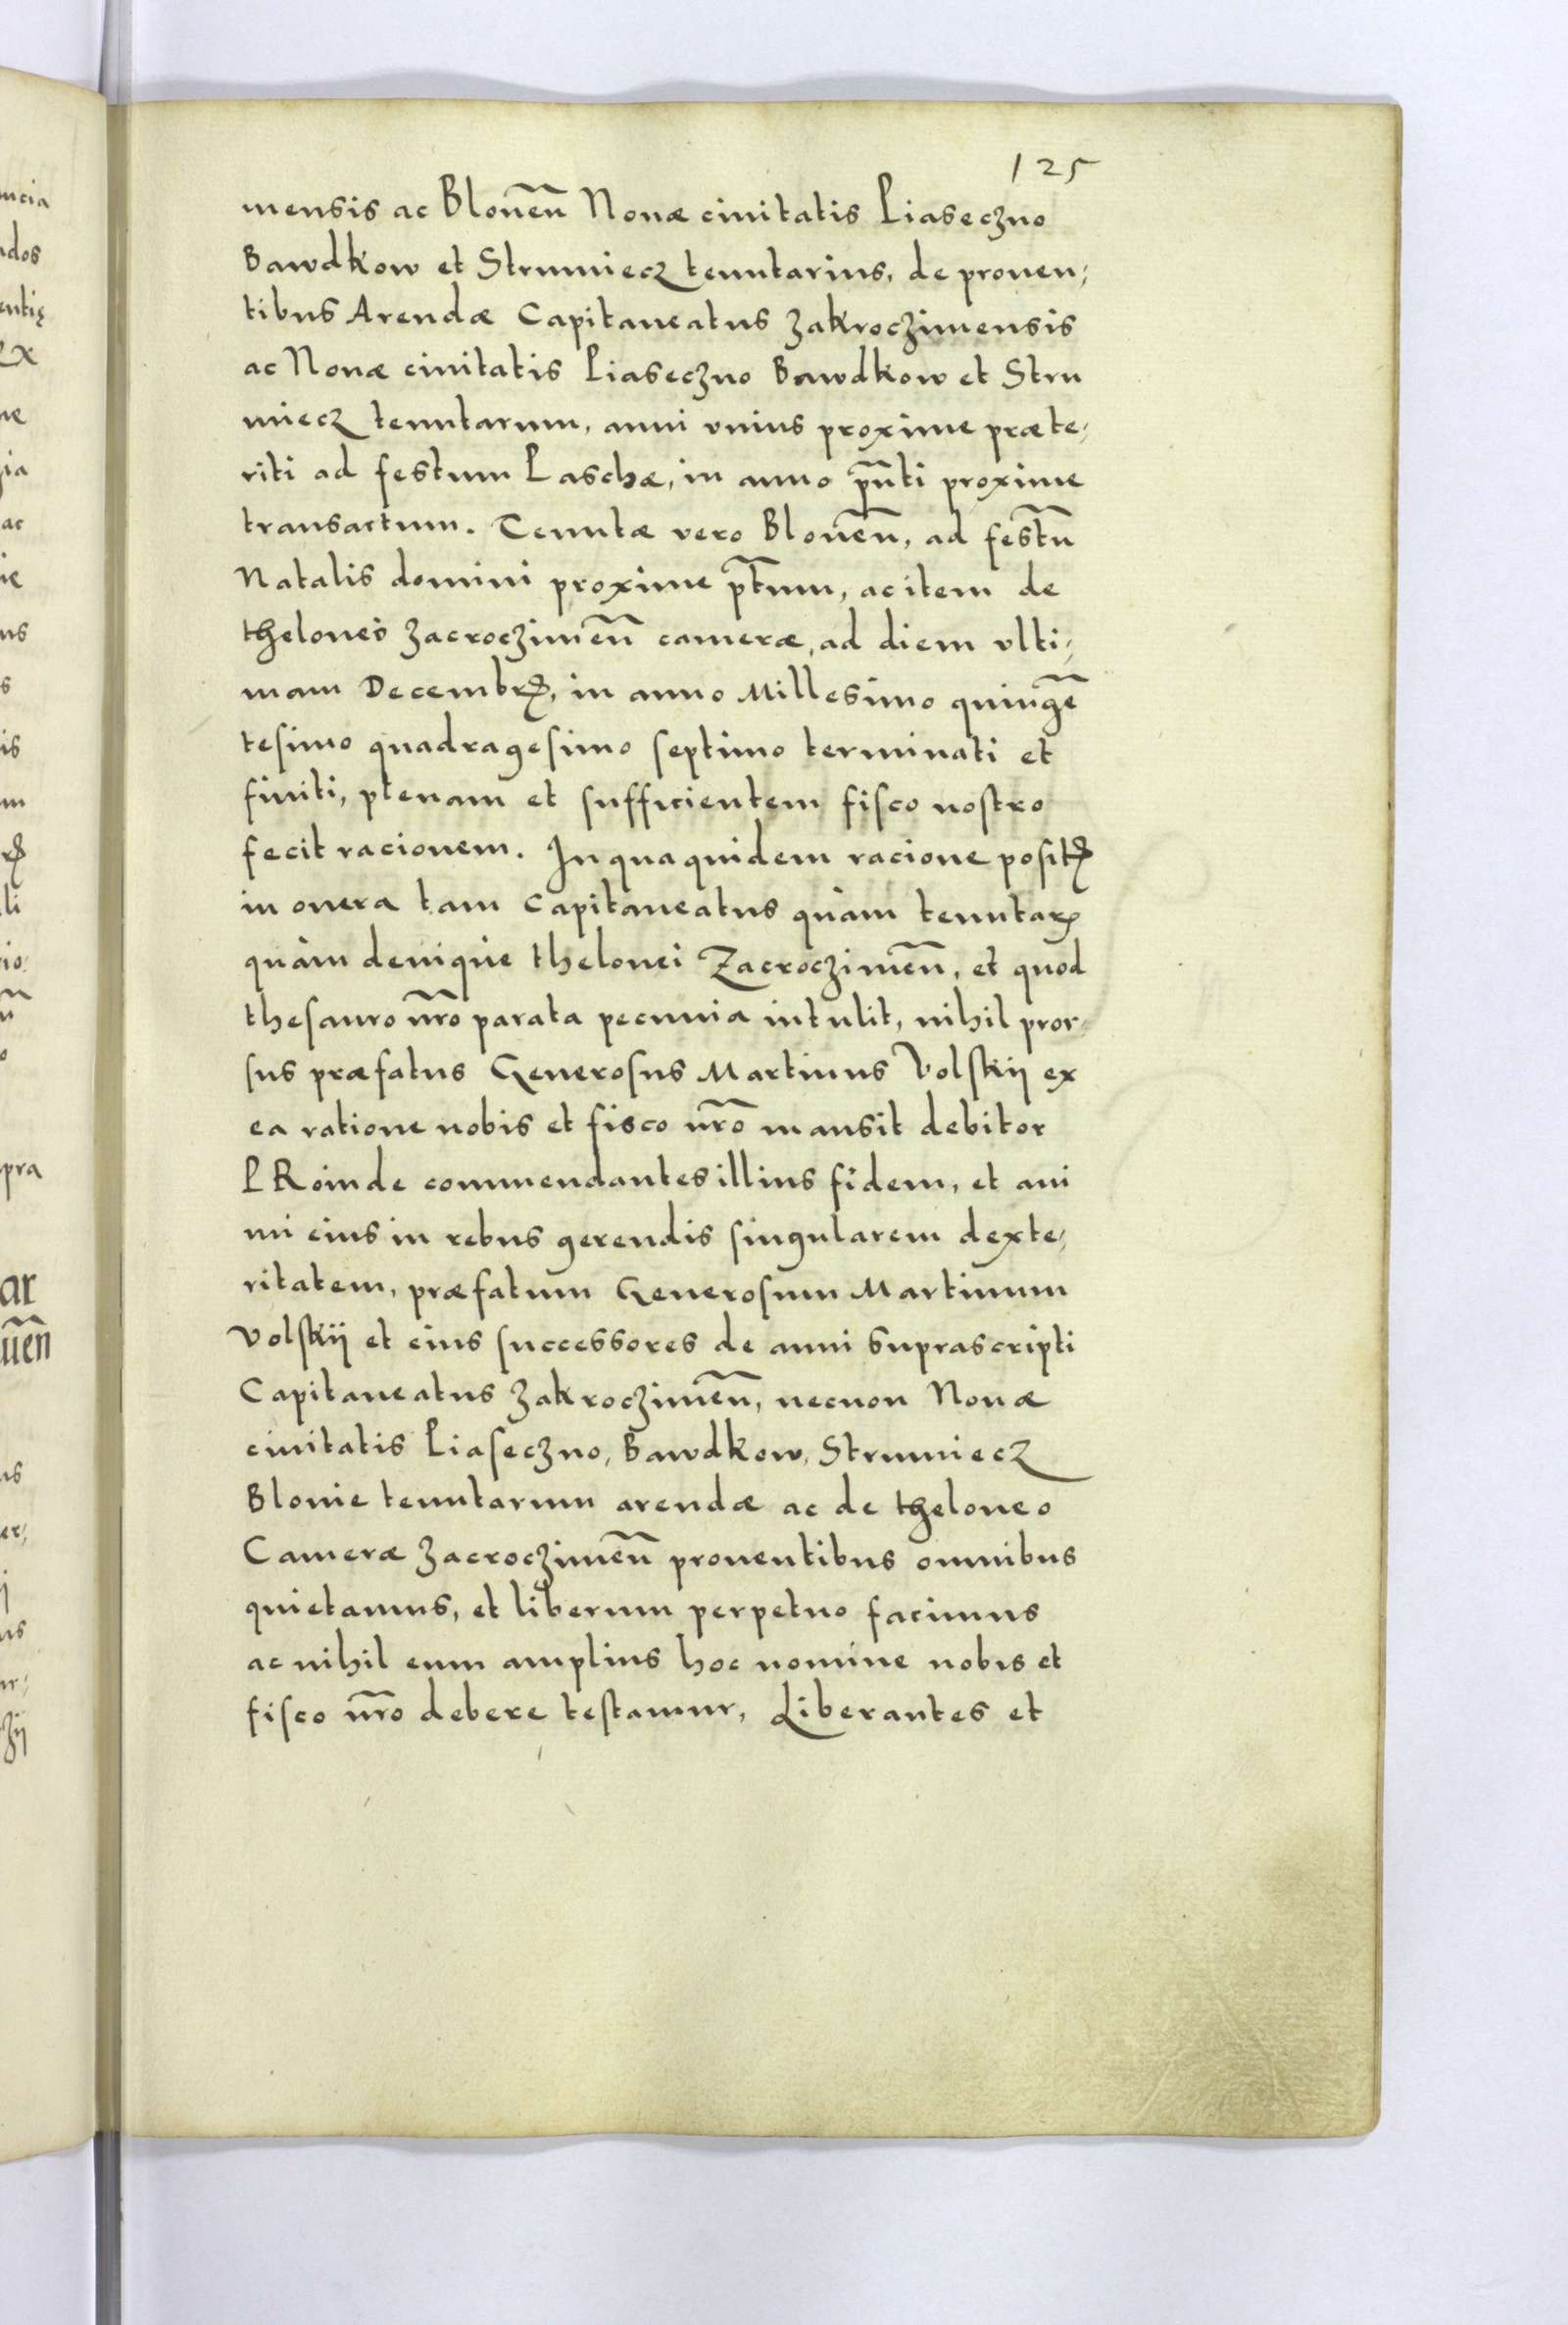 125
mensis ac Blonen̄ Nouæ ciuitatis Piaseczno
Bawdkow et Strumiecz tenutarius, de prouen,
tibus Arendæ Capitaneatus Zakroczimensis
ac Nouæ ciuitatis Piaseczno Bawdkow et Stru
miecz tenutarum, anni vnius proxime præte,
riti ad festum Paschæ, in anno pn̄ti proxime
transactum. Tenutæ vero Blonen̄, ad festū
Natalis domini proxime pt̄um, ac item de
theloneo Zacroczimen̄ cameræ, ad diem vlti,
mam Decembrꝭ, in anno Millesimo quingē
tesimo quadragesimo septimo terminati et
finiti, plenam et sufficientem fisco nostro
fecit racionem. In qua quidem racione positꝭ
in onera tam Capitaneatus quàm tenutarꝝ
quàm denique thelonei Zacroczimen̄, et quod
thesauro nr̄o parata pecunia intulit, nihil pror,
sus præfatus Generosus Martinus Volskij ex
ea ratione nobis et fisco nr̄o mansit debitor
PRoinde commendantes illius fidem, et ani
mi eius in rebus gerendis singularem dexte,
ritatem, præfatum Generosum Martinum
Volskij et eius successores de anni suprascripti
Capitaneatus Zakroczimen̄, necnon Nouæ
ciuitatis Piaseczno, Bawdkow, Strumiecz
Blonie tenutarum arendæ ac de theloneo
Cameræ Zacroczimen̄ prouentibus omnibus
quietamus, et liberum perpetuo facimus
ac nihil eum amplius hoc nomine nobis et
fisco nr̄o debere testamur, Liberantes et